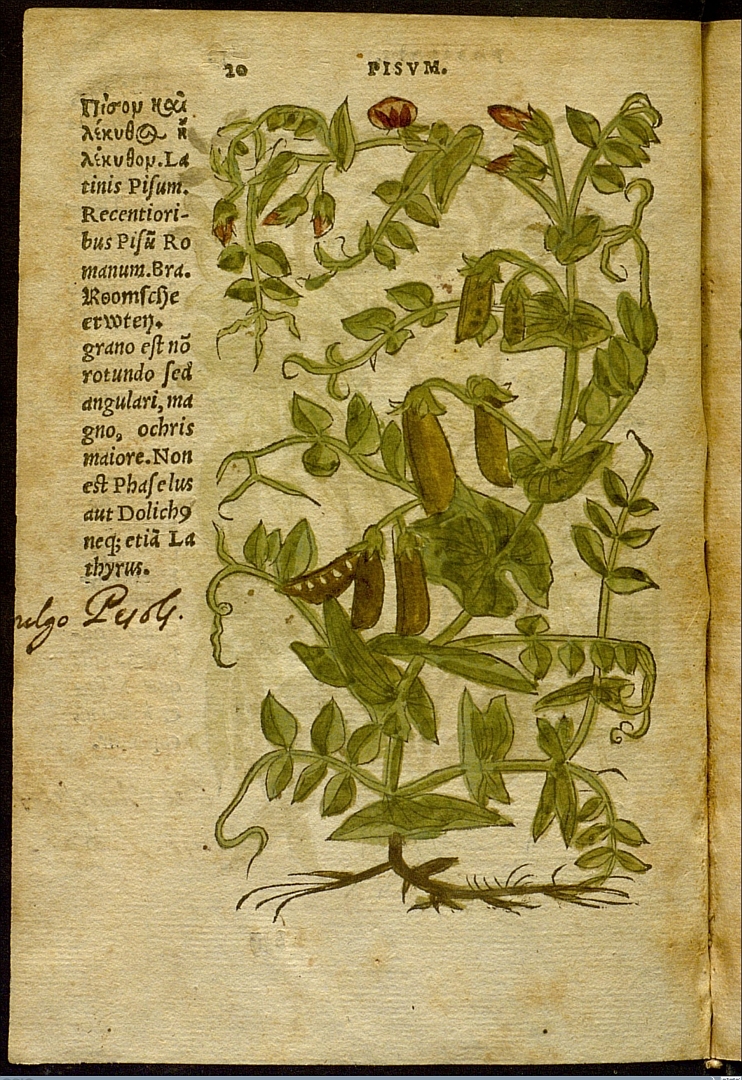 20 PISVM.
Πίσον καὶ
λέκυθ⊙ ἢ
λέκυθον. La
tinis Piſum.
Recentiori-
bus Piſũ Ro
manum. Bra.
Roomſche
erwten.
grano eſt nõ
rotundo ſed
angulari, ma
gno, ochris
maiore. Non
eſt Phaſelus
aut Dolichꝰ
neq; etiã La
thyrus.